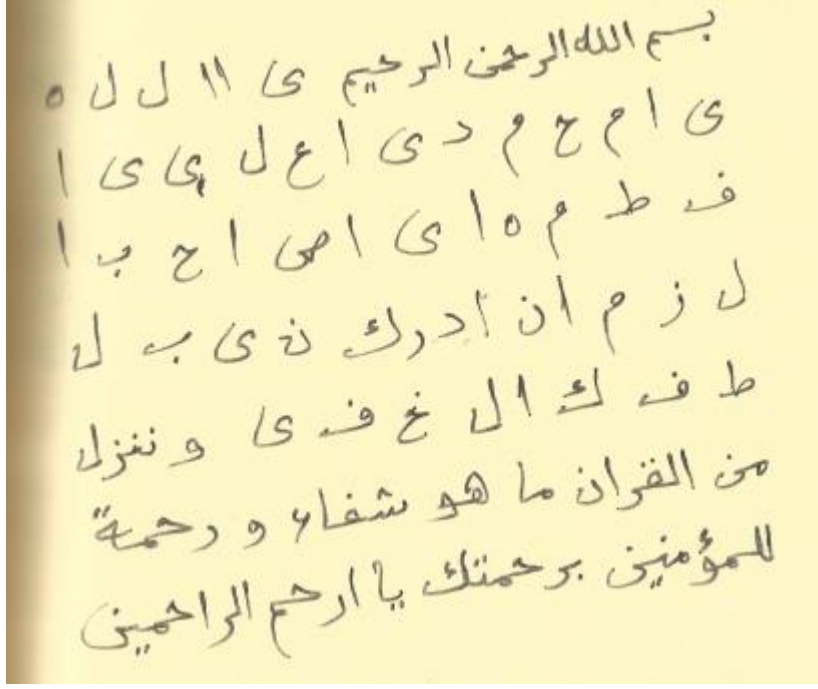 بسم الله الرحمن الرحيم ى ا ا ل ل ه
ى ا م ح م د ى ا ع ل ى ى ا
ف ط م ه ا ى ا ص ا ح ب ا
ل ز م ا ن ا د ر ك ن ى ب ل
ط ف ك ا ل خ ف ى و ننزل
من القران ما هو شفاء و رحمة
للمؤمنين برحمتك يا ارحم الراحمين